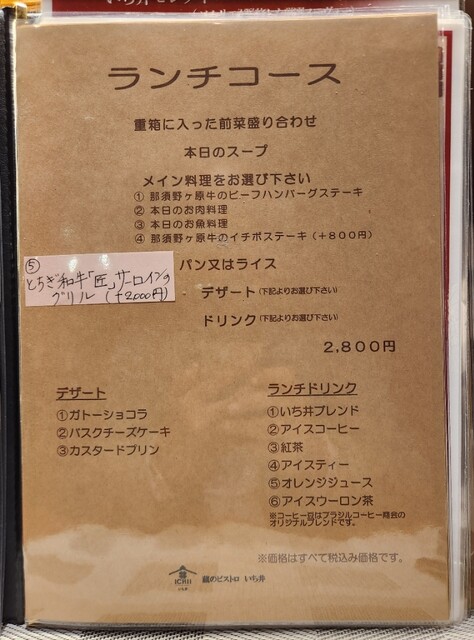 ランチコース
重箱に入った前菜盛り合わせ
本日のスープ
メイン料理をお選び下さい
① 那須野ヶ原牛のビーフハンバーグステーキ
② 本日のお肉料理
③ 本日のお魚料理
④ 那須野ヶ原牛のイチボステーキ(+800円)
⑤
とちぎ和牛「匠」サーロインの
グリル (+2000円)
パン又はライス
デザート(下記よりお選び下さい)
ドリンク(下記よりお選び下さい)
2,800円
デザート
①ガトーショコラ
②バスクチーズケーキ
③カスタードプリン
ランチドリンク
①いち井ブレンド
②アイスコーヒー
③紅茶
④アイスティー
⑤オレンジジュース
⑥アイスウーロン茶
※コーヒー豆はブラジルコーヒー商会の
オリジナルブレンドです。
※価格はすべて税込み価格です。
ICHII
蔵のビストロ いち井